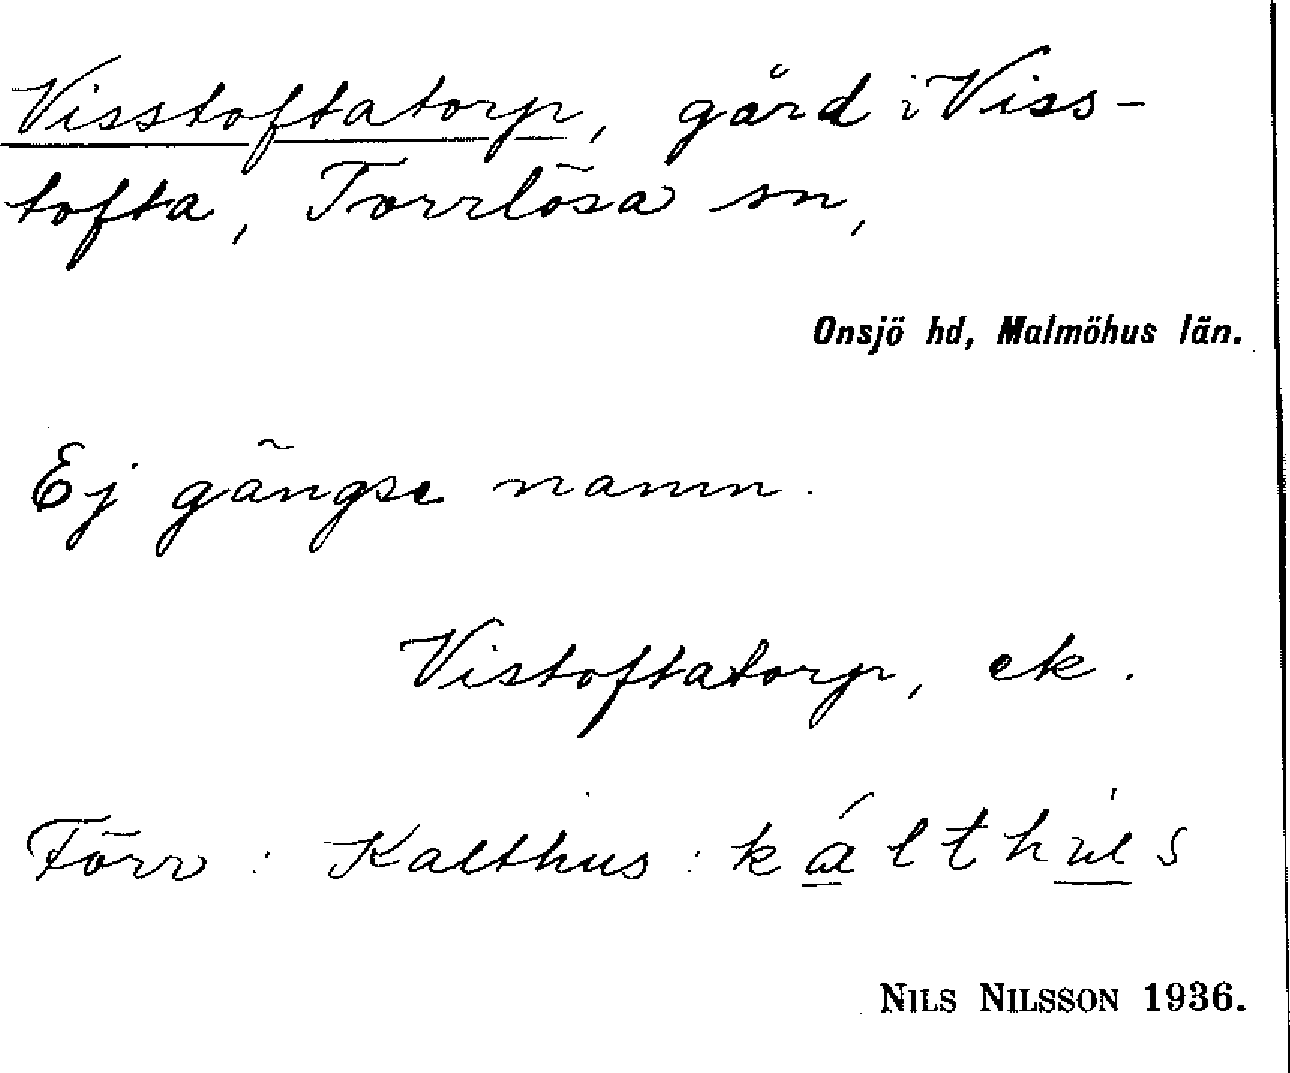 Visstoftatorp, gård i Viss-
tofta, Torrlösa sn,
Onsjö hd, Malmöhus län.
Ej gängse namn.
Vistoftatorp, ek.
Förr: Kalthus: kálthús
NILS NILSSON 1936.